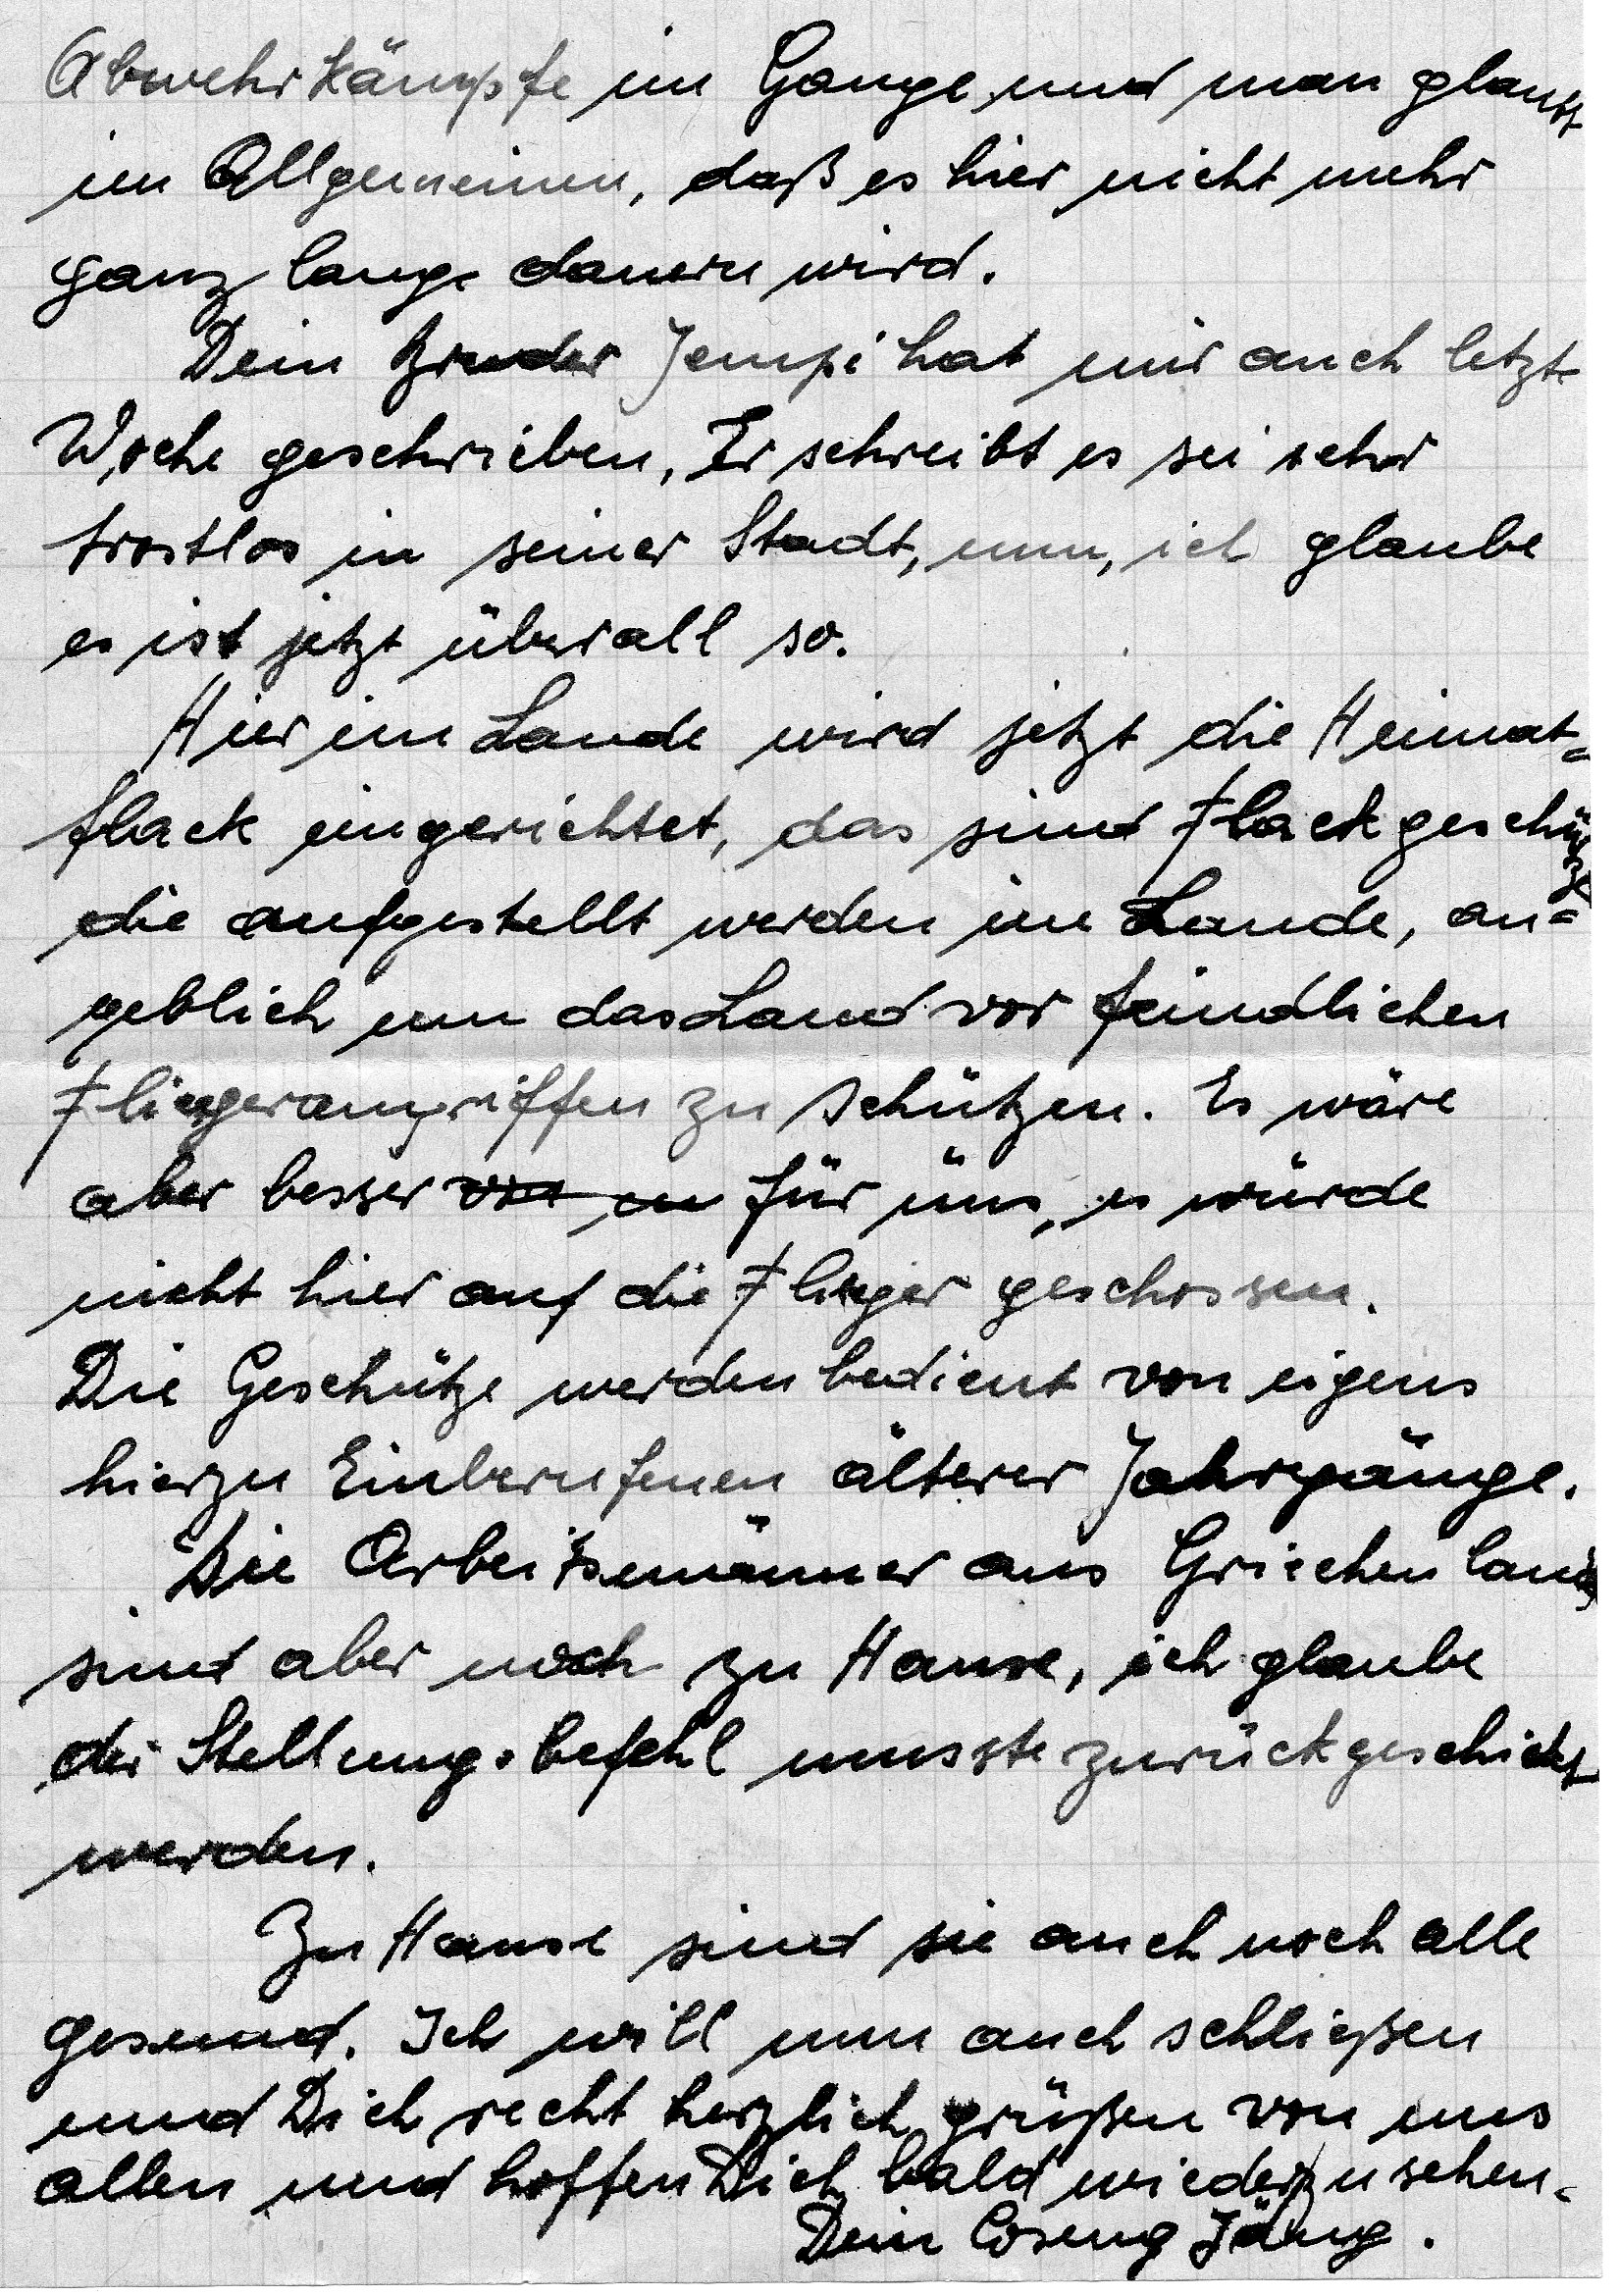 Abwehrkämpfe im Gange, und man glaubt
im Allgemeinen, daß es hier nicht mehr
ganz lange dauern wird.
Dein Bruder Jempi hat mir auch letzte
Woche geschrieben, Er schreibt es sei sehr
trostlos in seiner Stadt, nun, ich glaube
es ist jetzt überall so.
Hier im Lande wird jetzt die Heimat=
flack eingerichtet, das sind Flackgeschütze
die aufgestellt werden im Lande, an=
geblich um das Land vor feindlichen
Fliegerangriffen zu schützen. Es wäre
aber besser für üns, es würde
nicht hier auf die Flieger geschossen.
Die Geschütze werden bedient von eigens
hierzu Einberufenen älterer Jahrgänge.
Die Arbeitsmänner aus Griechenland
sind aber noch zu Hause, ich glaube
der Stellungsbefehl musste zurückgeschickt
werden.
Zu Hause sind sie auch noch alle
gesund. Ich will nun auch schließen
und Dich recht herzlich grüßen von uns
allen und hoffen Dich bald wiederzusehen.
Dein Coseng Jäng.